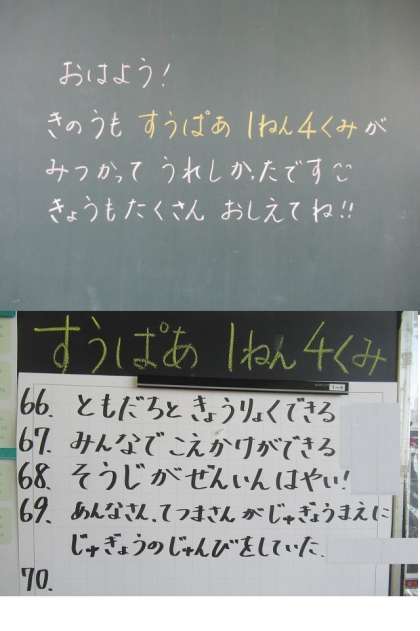 おはよう!
きのうも すうぱあ 1ねん4くみが
みつかって うれしかったです
きょうもたくさん おしえてね!!
すうぱあ 1ねん4くみ
66. ともだちと きょうりょくできる
67. みんなで こえかけができる
68. そうじが ぜんいん はやい!
69. あんなさん、てつまさんが じゅぎょうまえに
じゅぎょうの じゅんびを していた.
70.